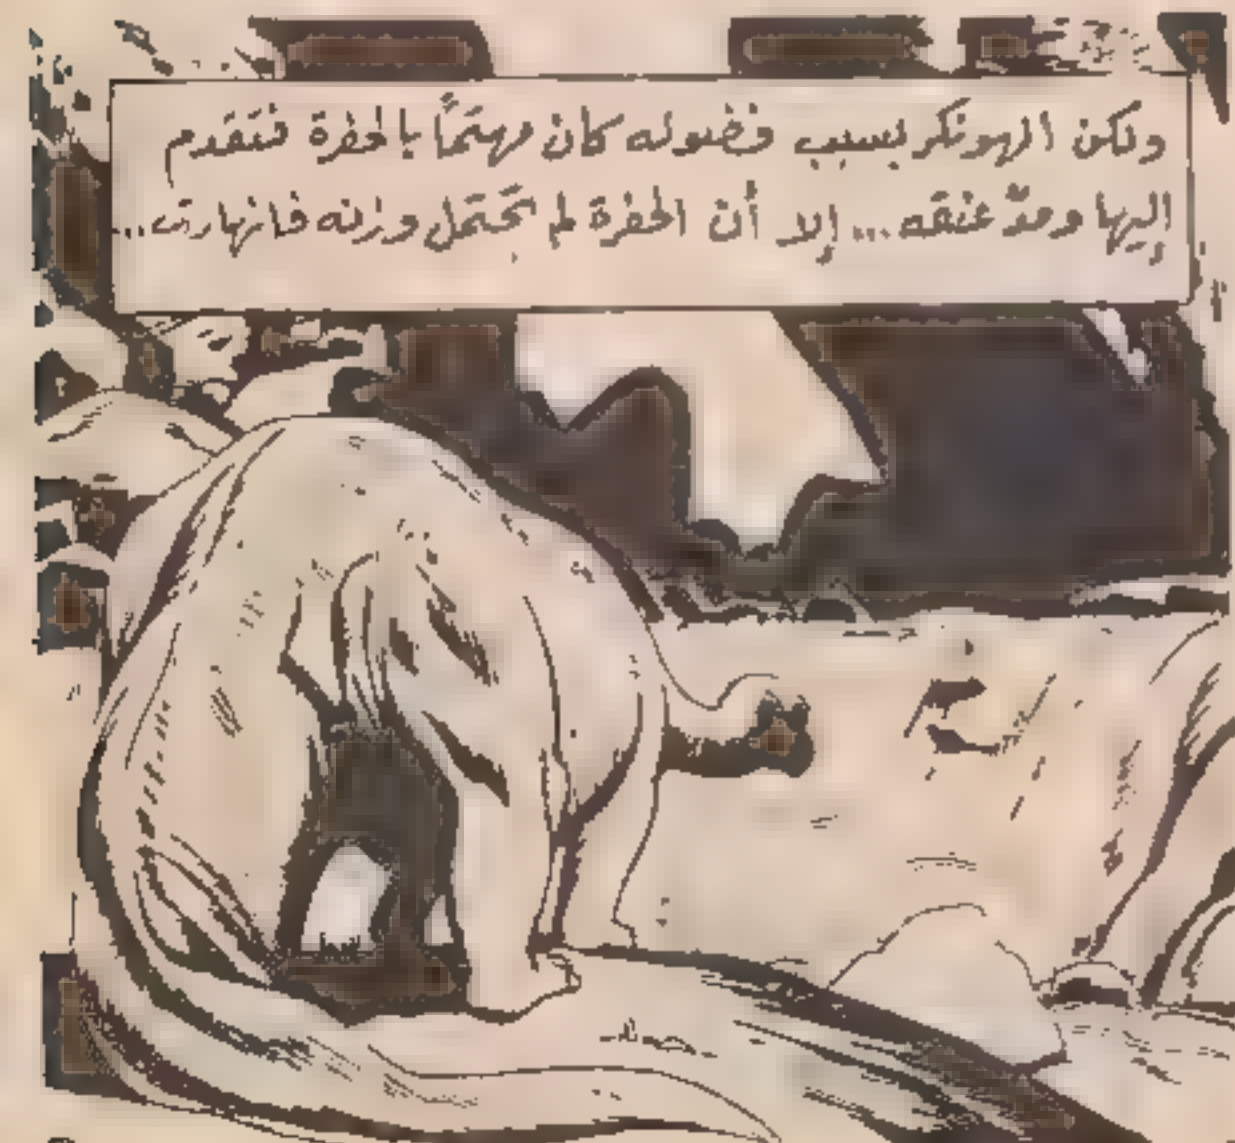 ولكن الهونكر بسبب فضوله كان مهتمًا بالحفرة فتقدم
إليها ومدّ عنقه... إلا أن الحفرة لم تحتمل وزنه فانهارت...